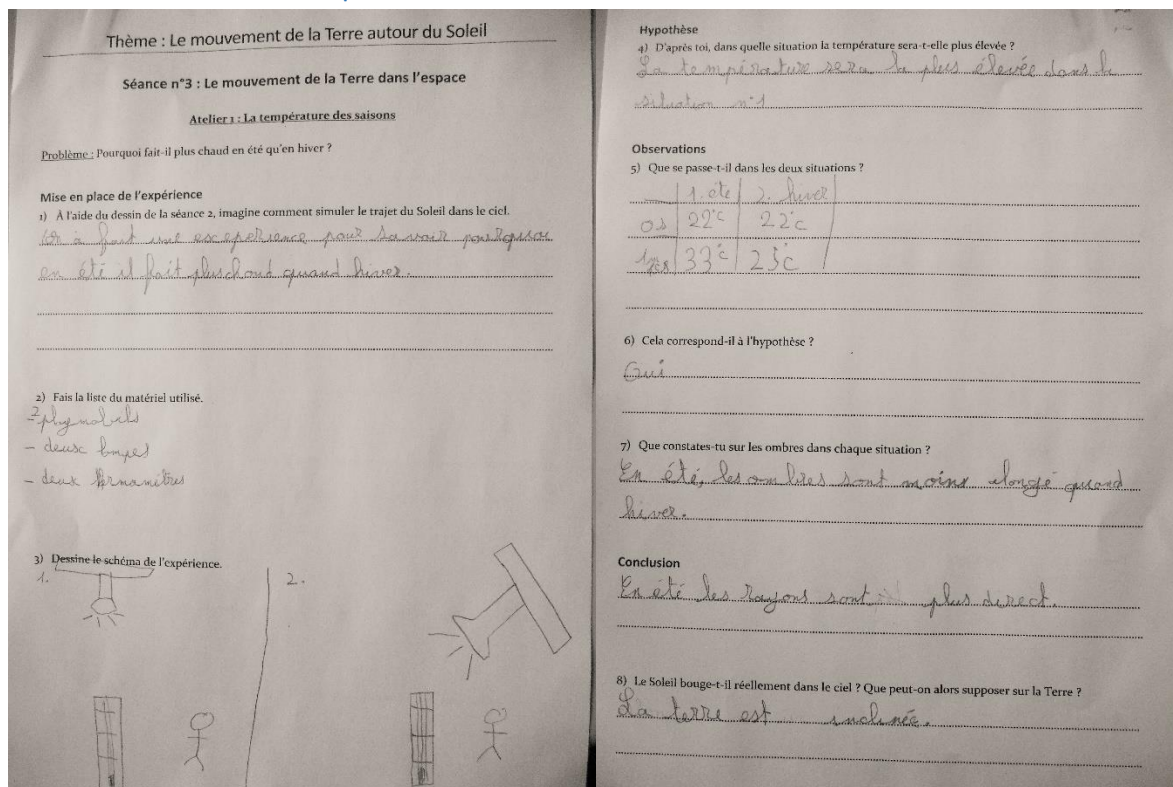 Thème : Le mouvement de la Terre autour du Soleil
Séance n°3 : Le mouvement de la Terre dans l'espace
Atelier 1 : La température des saisons
Problème : Pourquoi fait-il plus chaud en été qu'en hiver ?
Mise en place de l'expérience
1) À l'aide du dessin de la séance 2, imagine comment simuler le trajet du Soleil dans le ciel.
on à fait une exeperience pour savoir pourquoi
en été il fait plus choud quand hiver.
2) Fais la liste du matériel utilisé.
- 2 playmobils
- deux lampes
- deux termamètres
3) Dessine le schéma de l'expérience.
1.
2.
Hypothèse
4) D'après toi, dans quelle situation la température sera-t-elle plus élevée ?
La température sera la plus élevée dans la
situation n°1
Observations
5) Que se passe-t-il dans les deux situations ?
1. été 2. hiver
0s 22°c 22°c
33°c 25°c
6) Cela correspond-il à l'hypothèse ?
Oui
7) Que constates-tu sur les ombres dans chaque situation ?
En été, les ombres sont moins alongé quand
hiver.
Conclusion
En été les rayons sont plus direct.
8) Le Soleil bouge-t-il réellement dans le ciel ? Que peut-on alors supposer sur la Terre ?
La terre est inclinée.